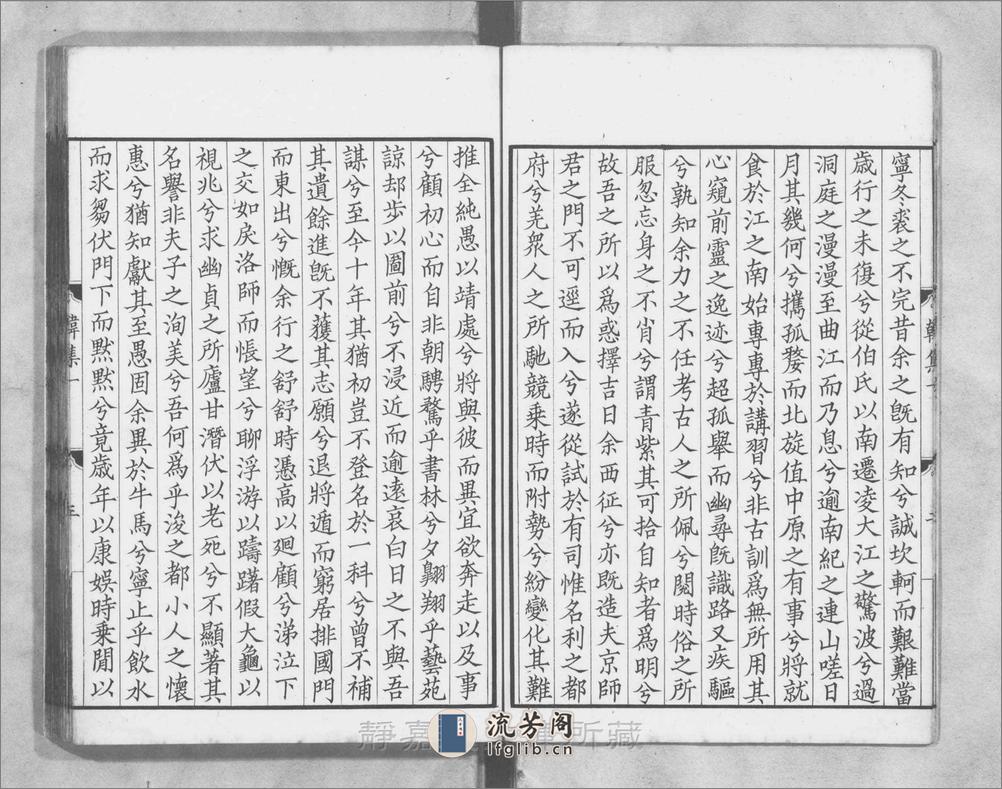 寧冬裘之不完昔余之旣有知兮誠坎軻而艱難當
歲行之未復兮從伯氏以南遷凌大江之驚波兮過
洞庭之漫漫至曲江而乃息兮逾南紀之連山嗟日
月其幾何兮攜孤嫠而北旋值中原之有事兮將就
食於江之南始專專於講習兮非古訓爲無所用其
心窺前靈之逸迹兮超孤舉而幽尋旣識路又疾驅
兮孰知余力之不任考古人之所佩兮閱時俗之所
服忽忘身之不肖兮謂青紫其可拾自知者爲明兮
故吾之所以爲惑擇吉日余西征兮亦既造夫京師
君之門不可逕而入兮遂從試於有司惟名利之都
府兮羌衆人之所馳競乘時而附勢兮紛變化其難
韓集
推全純愚以靖處兮將與彼而異宜欲奔走以及事
兮顧初心而自非朝騁騖乎書林兮夕翺翔乎藝苑
諒却步以圖前兮不浸近而逾遠哀白日之不與吾
謀兮至今十年其猶初豈不登名於一科兮曾不補
其遺餘進旣不獲其志願兮退將遁而窮居排國門
而東出兮慨余行之舒舒時憑高以廻顧兮涕泣下
之交如戾洛師而悵望兮聊浮游以躊躇假大龜以
視兆兮求幽貞之所廬甘潛伏以老死兮不顯著其
名譽非夫子之洵美兮吾何爲乎浚之都小人之懷
惠兮猶知獻其至愚固余異於牛馬兮寧止乎飲水
而求芻伏門下而默默兮竟歲年以康娛時乘閒以
韓集一
靜嘉
所藏
流芳阁
lfglib.cn